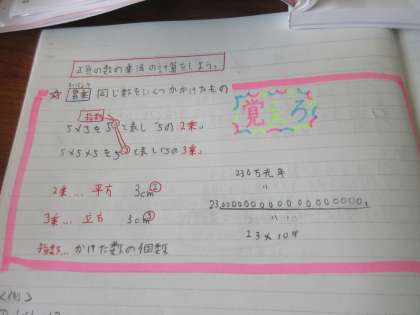 正負の数の乗法の計算をしよう。
☆ 累乗 同じ数をいくつかかけたもの
るいじょう
覚えろ
指数
5×5を5²と表し「5の2乗」
5×5×5を5³と表し「5の3乗」
2乗…平方 3cm²
3乗…立方 3cm³
指数…かけた数の個数
230万光年
〃
23
〈例〉